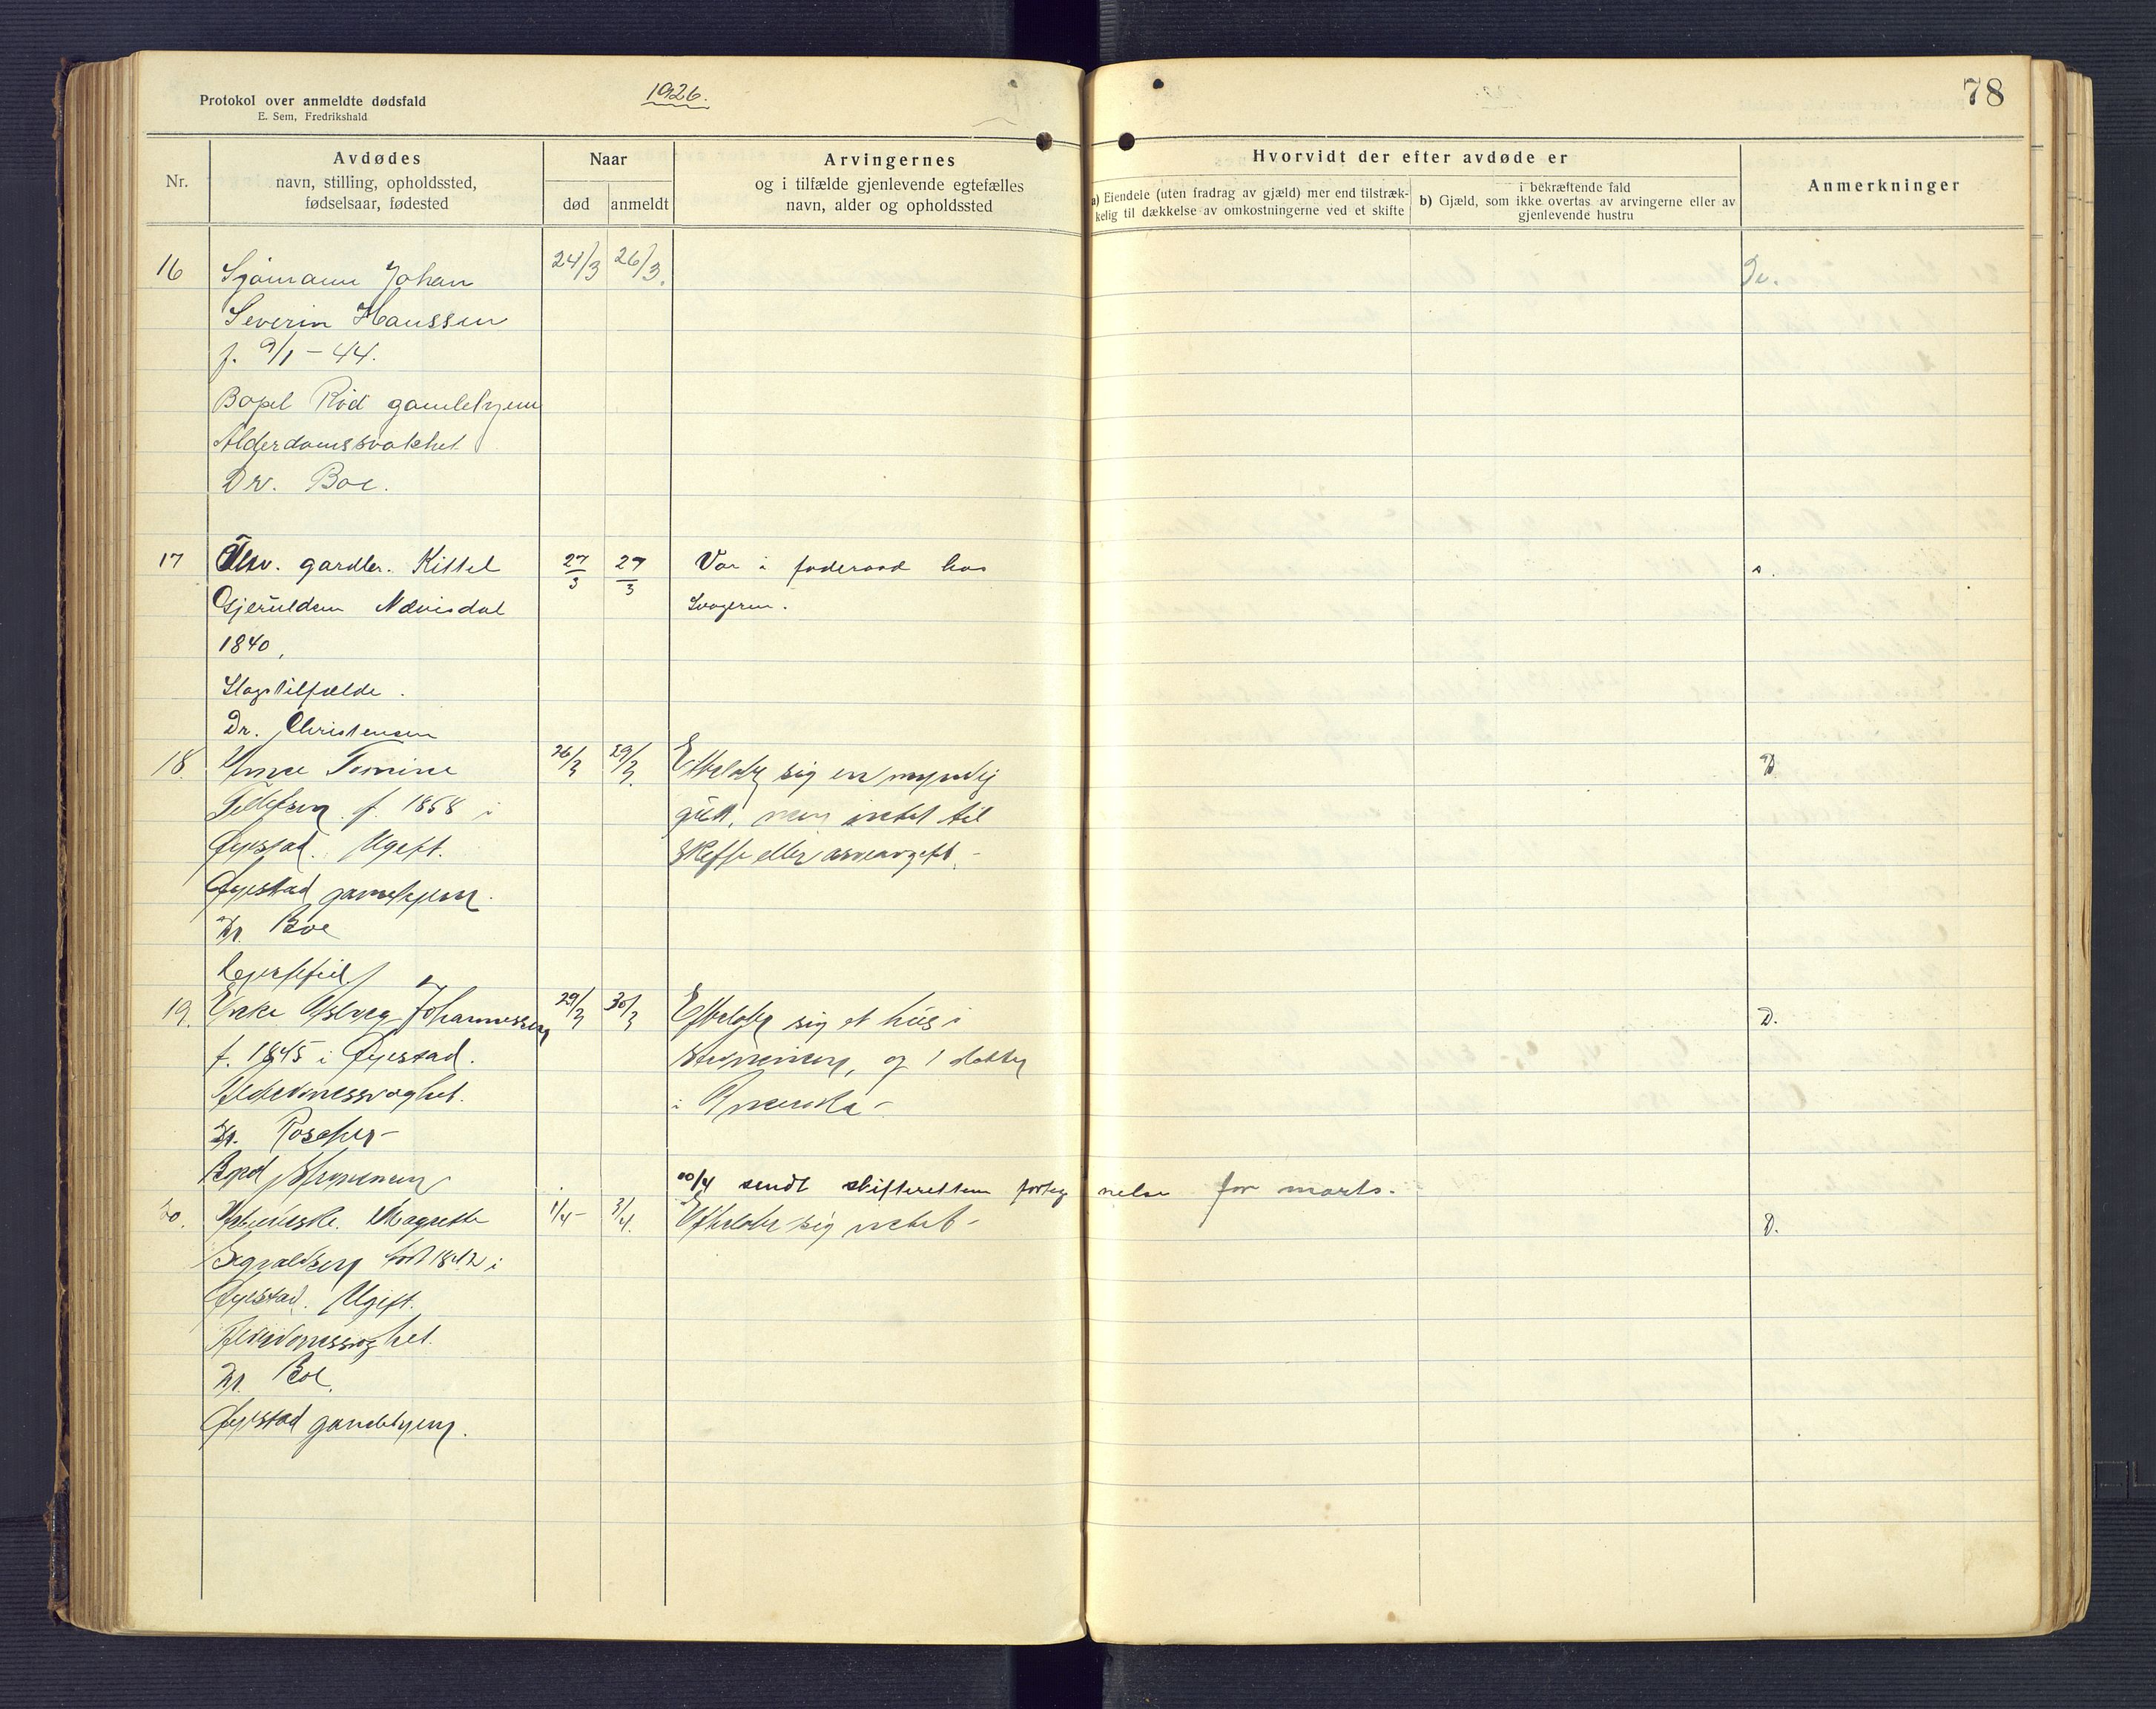 Protokol over anmeldte dødsfald
E. Sem, Fredrikshald
1926.
78
Nr.
Avdødes
navn, stilling, opholdssted,
fødselsaar, fødested
Naar
død
anmeldt
Arvingernes
og i tilfælde gjenlevende egtefælles
navn, alder og opholdssted
Hvorvidt der efter avdøde er
a) Eiendele (uten fradrag av gjæld) mer end tilstræk-
kelig til dækkelse av omkostningerne ved et skifte
i bekræftende fald
b) Gjæld, som ikke overtas av arvingerne eller av
gjenlevende hustru
Anmerkninger
16 Sjømann Johan 24/3 26/3.
Severin Hanssen
f. 9/1-44.
Bopel Rød gamlehjem
Alderdomssvakhet
Dr. Boe.
17 gardbr. Kittel 27/3 27/3 Var i foderaad hos
Gjeruldsen Nævisdal svogeren.
1840,
Slagtilfælde.
Dr. Christensen
18. Tomine 26/3 29/3. Efterlod sig en myndig
Tellefsen f. 1858 i gutt, men intet til
Øyestad. Ugift. skifte eller arveavgift.-
Øyestad gamlehjem.
Dr. Boe
Hjertefeil
19. Enke Johannessen 29/3 30/3 Efterlater sig et hus i D.
f. 1845 i Øyestad. og 1 datter
Alderdomssvaghet. i Amerika-
Dr. Roscher-
Bopel
10/4 sendt skifteretten fortegnelse for marts.
20. Magrethe 1/4- 3/4. Efterlater sig intet- D.
født 1842 i
Øyestad. Ugift.
Alderdomssvaghet.
Dr. Boe.
Øyestad gamlehjem.